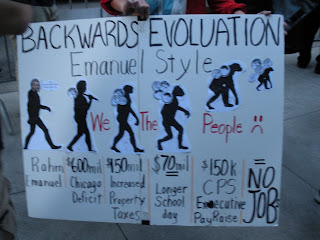 BACKWARDS EVOLUATION
Emanuel Style
We The People :(
Rahm
Emanuel
$600mil
Chicago
Deficit
$150mil
Increased
Property
Taxes
$70mil
Longer
School
day
$150k
CPS
Executive
Pay Raise
NO
JOB